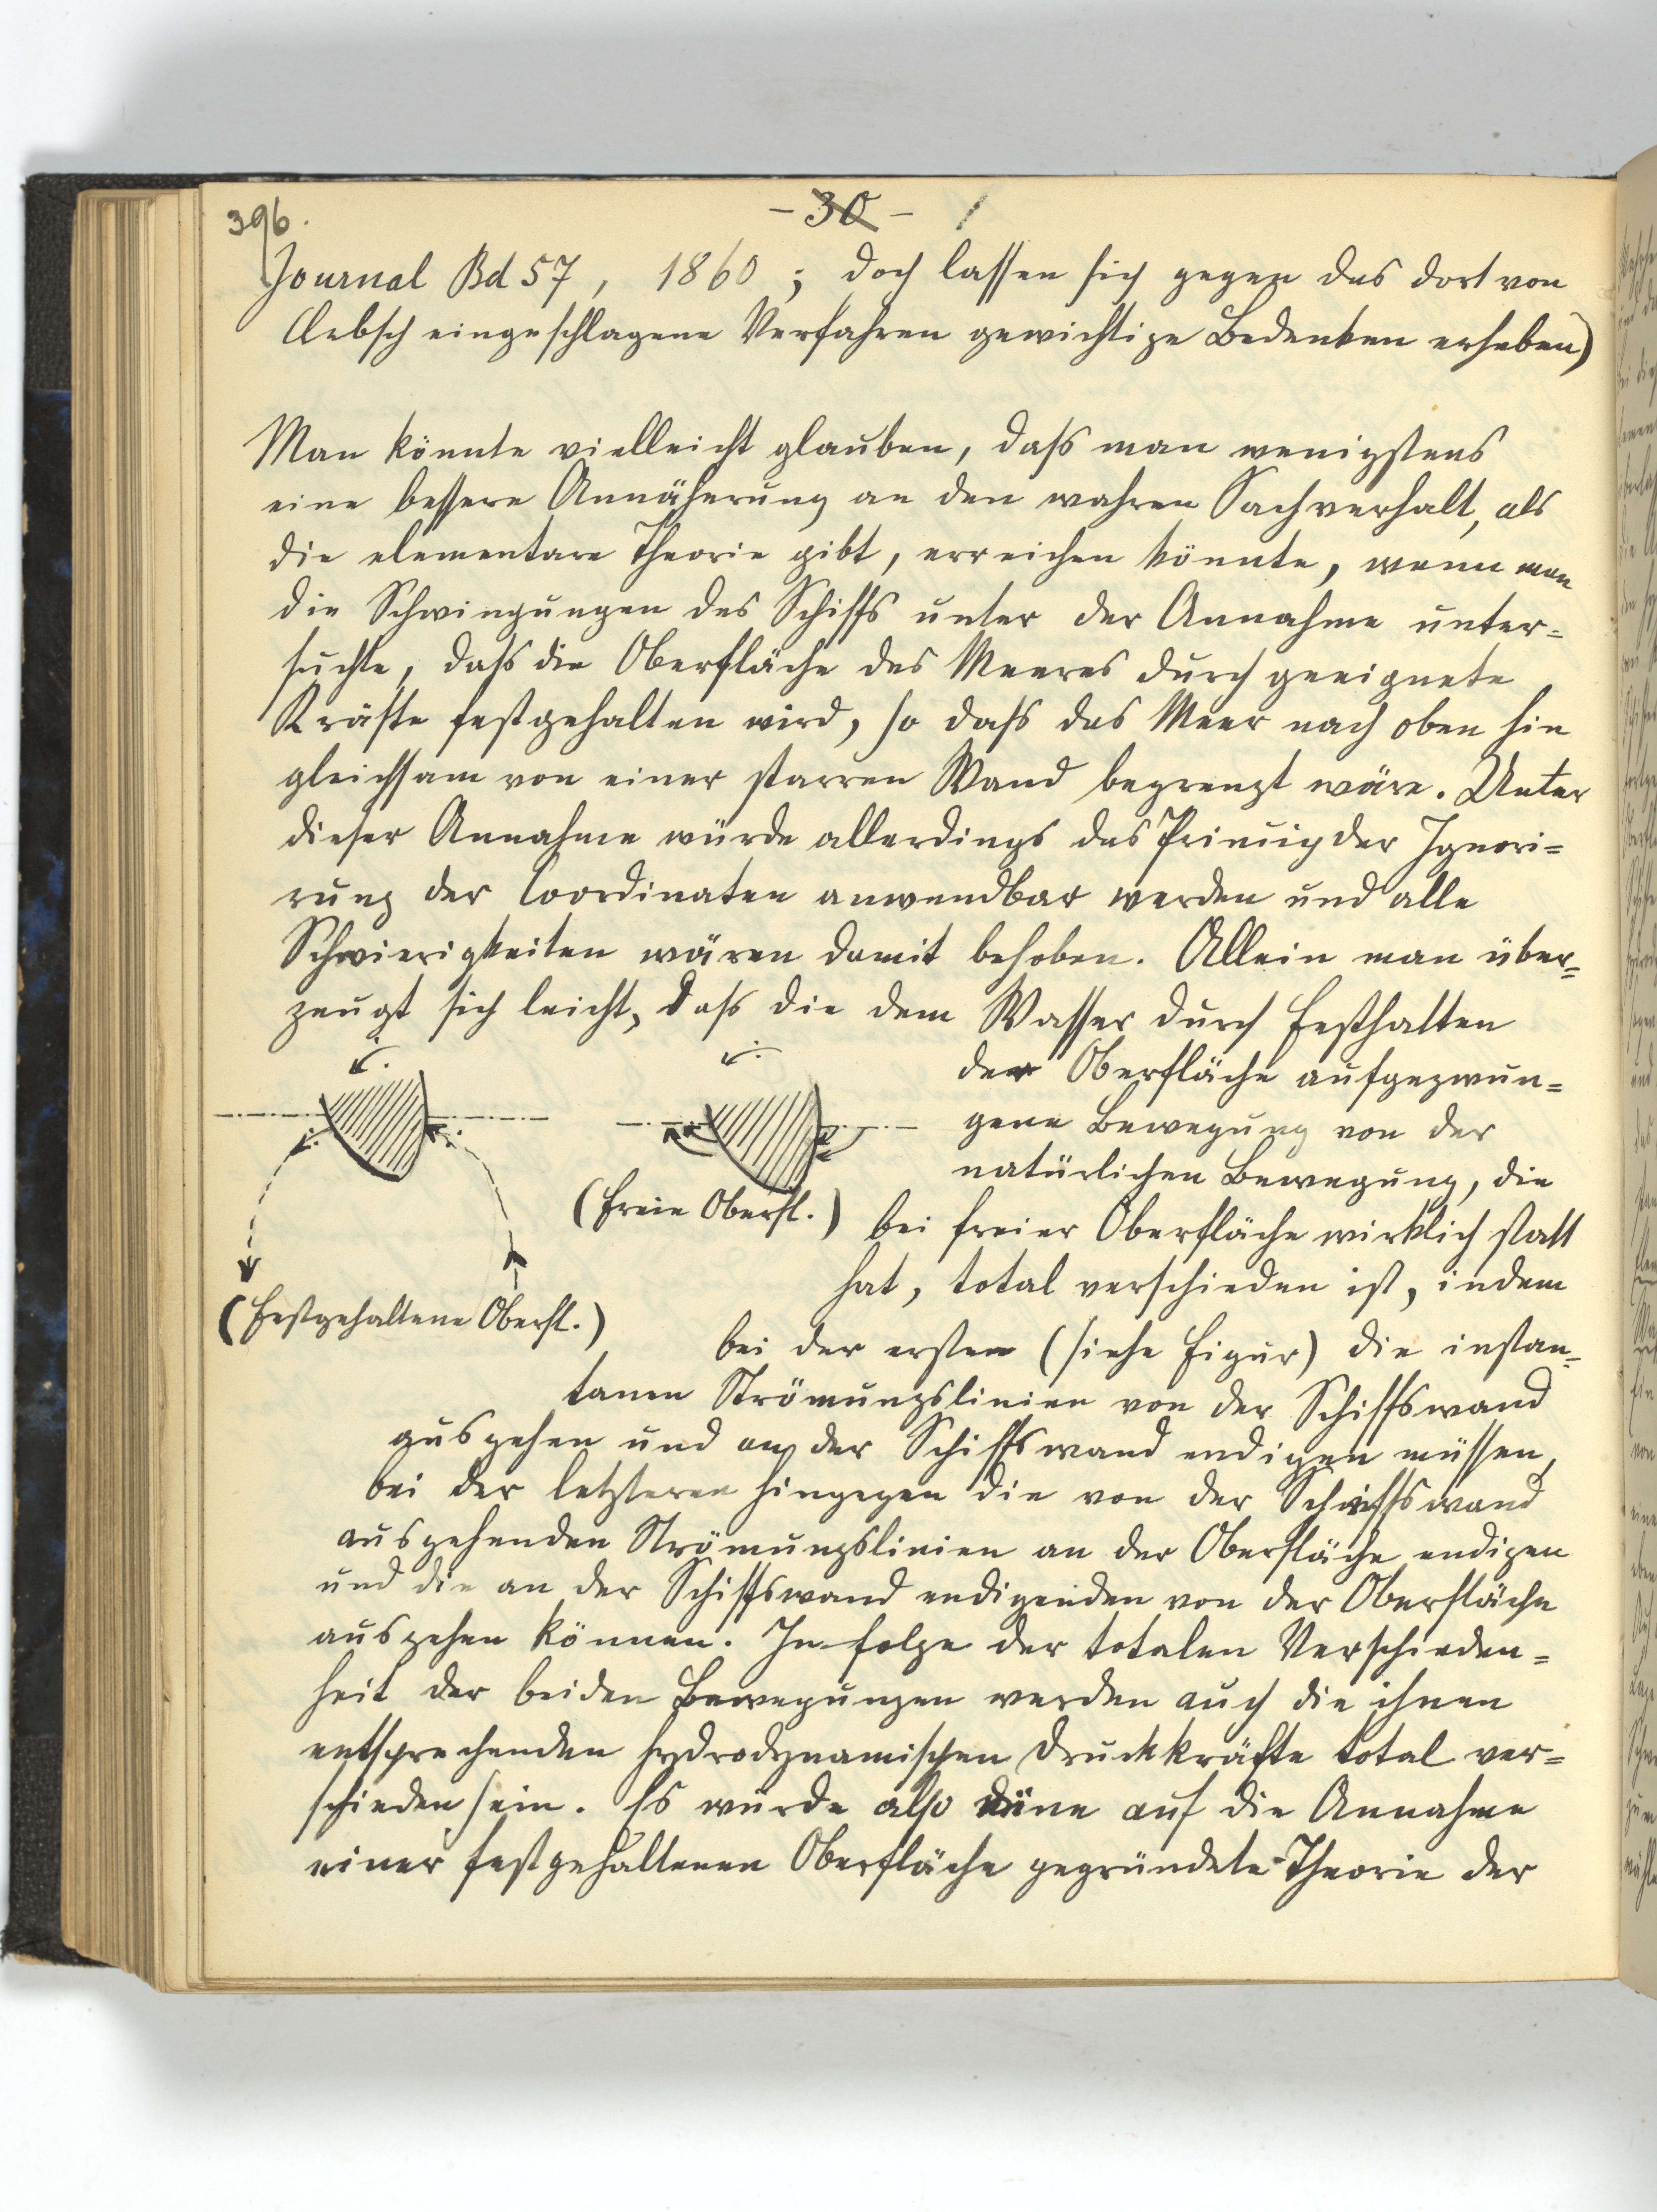 396.
- 30 -
Journal Bd 57, 1860; doch lassen sich gegen das dort von
Clebsch eingeschlagene Verfahren gewichtige Bedenken erheben)
Man könnte vielleicht glauben, dass man wenigstens
eine bessere Annäherung an den wahren Sachverhalt, als
die elementare Theorie gibt, erreichen könnte, wenn man
die Schwingungen des Schiffs unter der Annahme unter=
suchte, dass die Oberfläche des Meeres durch geeignete
Kräfte festgehalten wird, so dass das Meer nach oben hin
gleichsam von einer starren Wand begrenzt wäre. Unter
dieser Annahme würde allerdings das Princip der Ignori=
rung der Coordinaten anwendbar werden und alle
Schwierigkeiten wären damit behoben. Allein man über=
zeugt sich leicht, dass die dem Wasser durch Festhalten
der Oberfläche aufgezwun=
gene Bewegung von der
natürlichen Bewegung, die
(freie Oberfl.) bei freier Oberfläche wirklich statt
hat, total verschieden ist, indem
(festgehaltene Oberfl.)
bei der ersten (siehe Figur) die instan=
tanen Strömungslinien von der Schiffswand
ausgehen und an der Schiffswand endigen müssen,
bei der letzteren hingegen die von der Schiffswand
ausgehenden Strömungslinien an der Oberfläche endigen
und die an der Schiffswand endigenden von der Oberfläche
ausgehen können. In folge der totalen Verschieden=
heit der beiden Bewegungen werden auch die ihnen
entsprechenden hydrodynamischen Druckkräfte total ver=
schieden sein. Es würde also eine auf die Annahme
einer festgehaltenen Oberfläche gegründete Theorie der